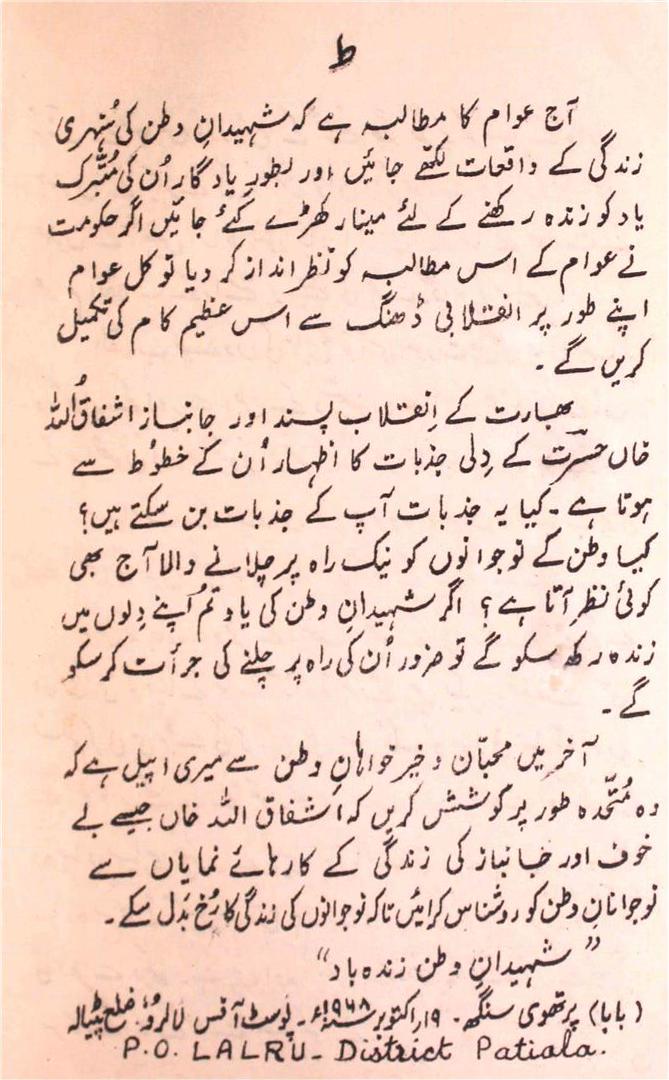 ط
آج عوام کا مطالبہ ہے کہ شہیدانِ وطن کی سُنہری
زندگی کے واقعات لکھے جائیں اور بطورِ یادگار اُن کی مُتبّرک
یاد کو زندہ رکھنے کے لئے مینار کھڑے کئے جائیں اگر حکومت
نے عوام کے اس مطالبہ کو نظر انداز کر دیا تو کل عوام
اپنے طور پر انقلابی ڈھنگ سے اس عظیم کام کی تکمیل
کریں گے ۔
بھارت کے اِنقلاب پسند اور جانباز اشفاقُ اللہ
خاں حسرؔت کے دِلی جذبات کا اظہار اُن کے خطوُط سے
ہوتا ہے ۔ کیا یہ جذبات آپ کے جذبات بن سکتے ہیں؟
کیا وطن کے نوجوانوں کو نیک راہ پر چلانے والا آج بھی
کوئی نظر آتا ہے؟ اگر شہیدانِ وطن کی یاد تُم اپنے دِلوں میں
زندہ رکھ سکو گے تو ضرور اُن کی راہ پر چلنے کی جرأت کر سکو
گے ۔
آخر میں محبّان و خیر خواہانِ وطن سے میری اپیل ہے کہ
وہ مُتّحدہ طور پر کوشش کریں کہ اشفاق اللہ خاں جیسے بے
خوف اور جانباز کی زندگی کے کارہائے نمایاں سے
نوجوانانِ وطن کو روشناس کرائیں تاکہ نوجوانوں کی زندگی کا رُخ بَدل سکے۔
”شہیدانِ وطن زندہ باد“
(بابا) پرتھوی سنگھ۔ ۱۹ر اکتوبر ۱۹۶۸ء۔ پوسٹ آفس لالڑو، ضلع پٹیالہ
P.O. LALRU - District Patiala.